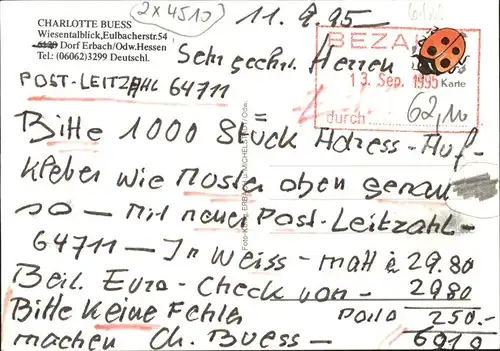 CHARLOTTE BUESS
Wiesentalblick,Eulbacherstr.54
6120 Dorf Erbach/Odw.Hessen
Tel.: (06062)3299 Deutschl.
2x4510
11.9.95
BEZA
13. Sep. 1995 Karte
durch 62,10
Sehr geehr. Herren
POST-LEITZAHL 64711
Bitte 1000 Stück Adress-Auf-
kleber wie Muster oben genau
so — mit neuer Post-Leitzahl-
64711 — In Weiss - matt à 29.80
Beil. Euro-Check von - 2980
Bitte Keine Fehler Porto 250.-
machen Ch. Buess -